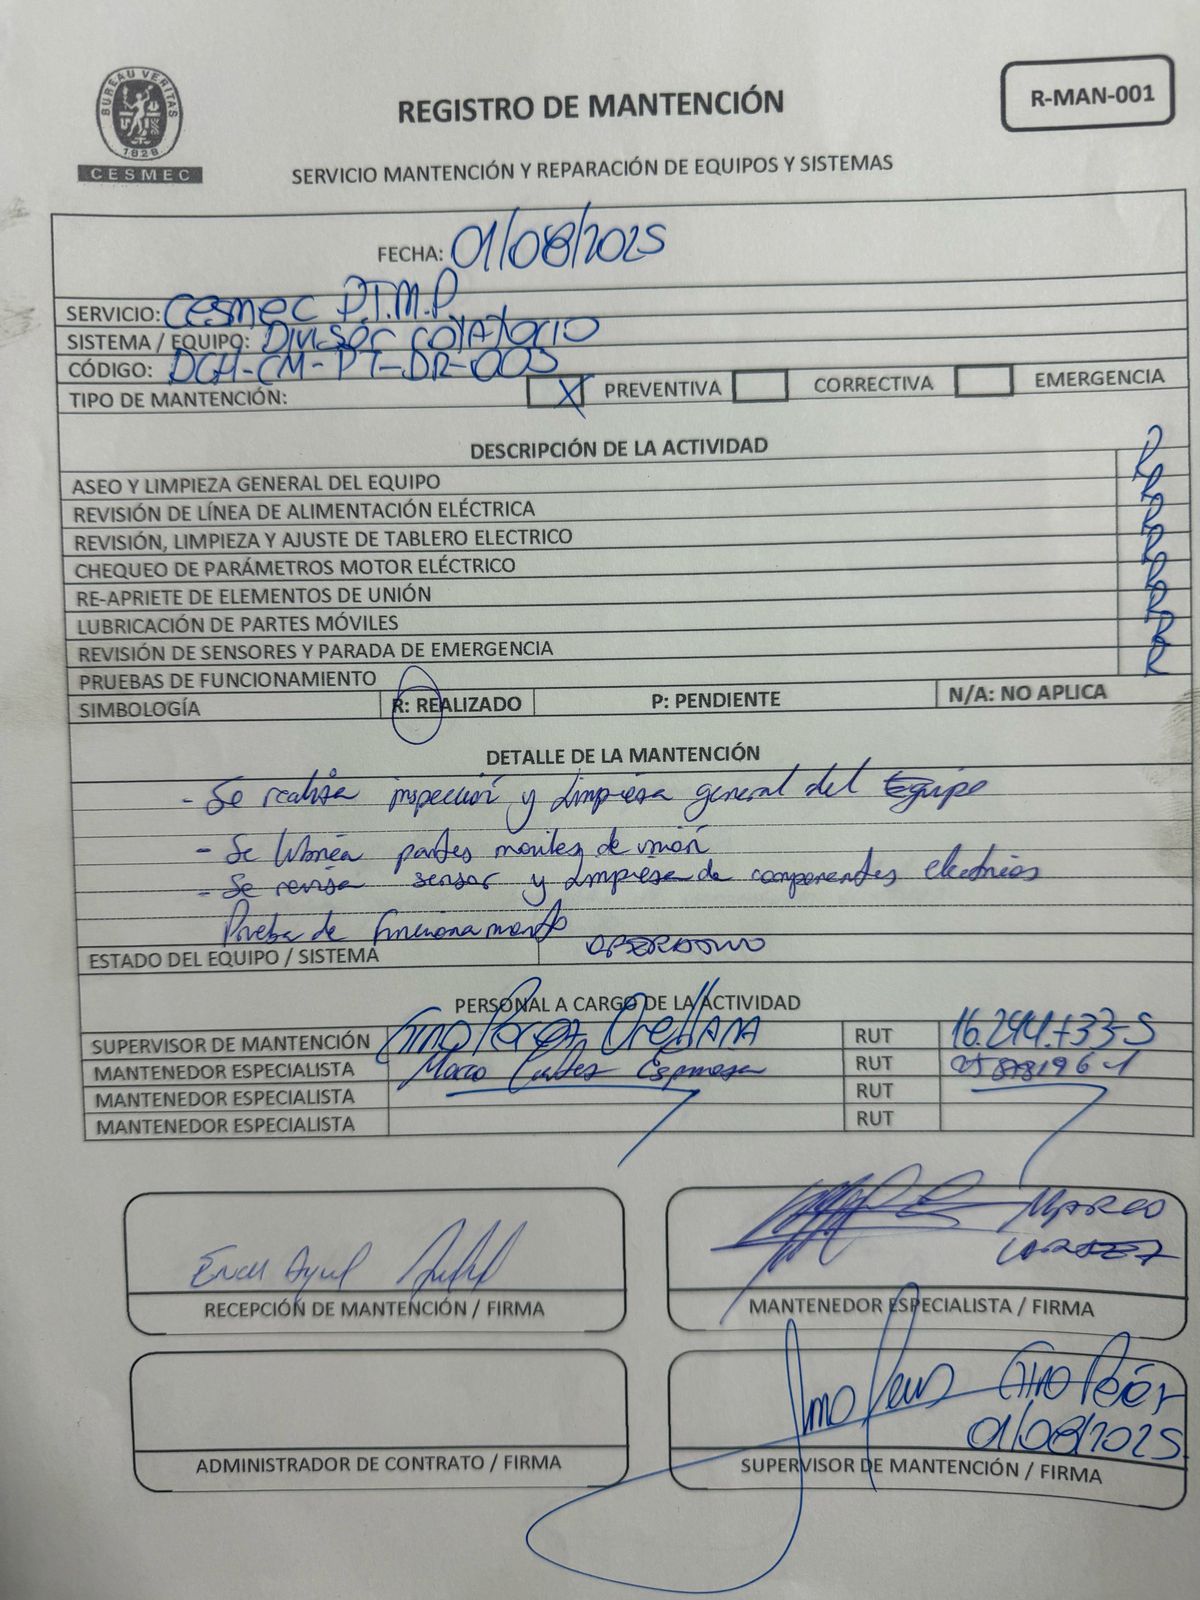 BUREAU VERITAS
1828
CESMEC
REGISTRO DE MANTENCIÓN
R-MAN-001
SERVICIO MANTENCIÓN Y REPARACIÓN DE EQUIPOS Y SISTEMAS
FECHA: 01/08/2025
SERVICIO: Cesmec P.T.M.P
SISTEMA / EQUIPO: Divisor rotatorio
CÓDIGO: DCH-CM-PT-DR-003
TIPO DE MANTENCIÓN: X PREVENTIVA CORRECTIVA EMERGENCIA
DESCRIPCIÓN DE LA ACTIVIDAD
ASEO Y LIMPIEZA GENERAL DEL EQUIPO R
REVISIÓN DE LÍNEA DE ALIMENTACIÓN ELÉCTRICA R
REVISIÓN, LIMPIEZA Y AJUSTE DE TABLERO ELECTRICO R
CHEQUEO DE PARÁMETROS MOTOR ELÉCTRICO R
RE-APRIETE DE ELEMENTOS DE UNIÓN R
LUBRICACIÓN DE PARTES MÓVILES R
REVISIÓN DE SENSORES Y PARADA DE EMERGENCIA R
PRUEBAS DE FUNCIONAMIENTO R
SIMBOLOGÍA R: REALIZADO P: PENDIENTE N/A: NO APLICA
DETALLE DE LA MANTENCIÓN
- Se realiza inspección y limpiesa general del Equipo
- Se lubrica partes moviles de unión
- Se revisa sensor y limpiesa de componentes electricos
Prueba de funcionamiento
ESTADO DEL EQUIPO / SISTEMA OPERATIVO
PERSONAL A CARGO DE LA ACTIVIDAD
SUPERVISOR DE MANTENCIÓN Gino Perez Orellana RUT 16.244.733-5
MANTENEDOR ESPECIALISTA Marco Espinosa RUT
MANTENEDOR ESPECIALISTA RUT
MANTENEDOR ESPECIALISTA RUT
MARCO
RECEPCIÓN DE MANTENCIÓN / FIRMA
MANTENEDOR ESPECIALISTA / FIRMA
Gino Peréz
01/08/2025
ADMINISTRADOR DE CONTRATO / FIRMA
SUPERVISOR DE MANTENCIÓN / FIRMA